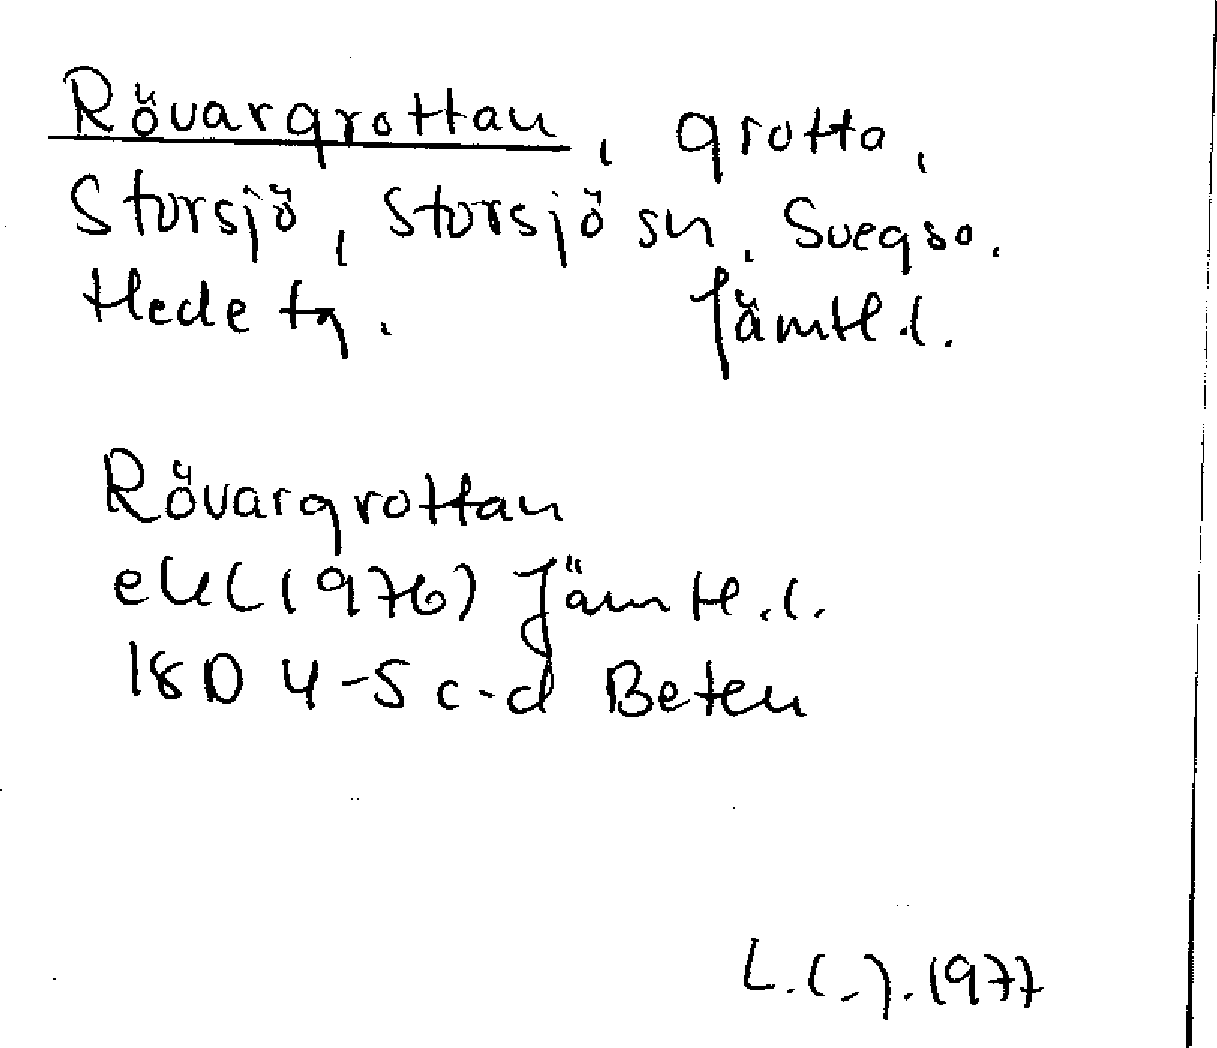 Rövargrottan, grotta,
Storsjö, Storsjö sn, Svegs so.
Hede tg, Jämtl. l.
Rövargrottan
ekk (1976) Jämtl. l.
18D 4-5 c-d Beten
1977